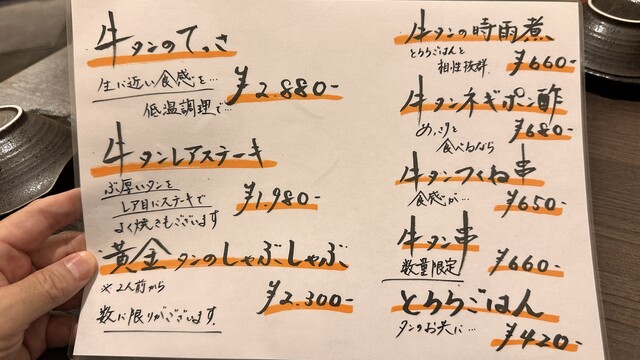 牛タンのてっさ
生に近い食感を…
低温調理で…
¥2.880-
牛タンレアステーキ
ぶ厚いタンを
レア目にステーキで
よく焼きもございます
¥1.980-
黄金タンのしゃぶしゃぶ
※2人前から
¥2.300-
数に限りがございます.
牛タンの時雨煮
とろろごはんと
相性抜群.
¥660-
牛タンネギポン酢
めっきりと
食べるなら
¥680-
牛タンつくね串
食感が…
¥650-
牛タン串
数量限定
¥660-
とろろごはん
タンのお供に…
¥420-